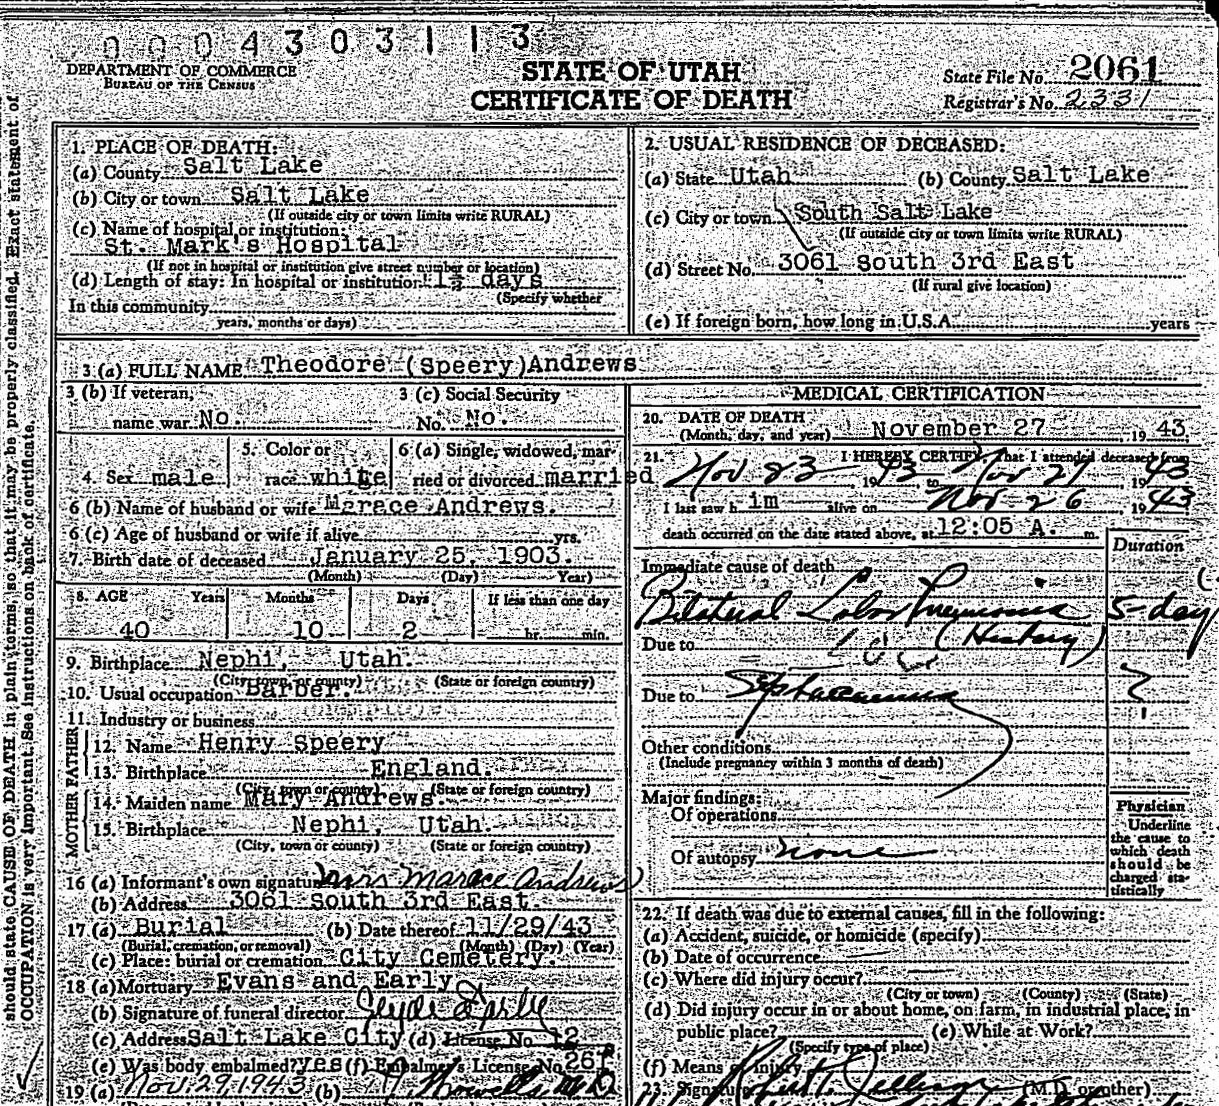 0004303113
DEPARTMENT OF COMMERCE
BUREAU OF THE CENSUS
STATE OF UTAH
CERTIFICATE OF DEATH
State File No. 2061
Registrar's No. 2331
should state CAUSE OF DEATH in plain terms, so that it may be properly classified. Exact statement of
OCCUPATION is very important. See instructions on back of certificate.
1. PLACE OF DEATH:
(a) County Salt Lake
(b) City or town Salt Lake
(If outside city or town limits write RURAL)
(c) Name of hospital or institution:
St. Mark's Hospital
(If not in hospital or institution give street number or location)
(d) Length of stay: In hospital or institution 1½ days
(Specify whether
In this community
years, months or days)
2. USUAL RESIDENCE OF DECEASED:
(a) State Utah (b) County Salt Lake
(c) City or town South Salt Lake
(If outside city or town limits write RURAL)
(d) Street No. 3061 South 3rd East
(If rural give location)
(e) If foreign born, how long in U.S.A. years
3 (a) FULL NAME Theodore (Speery) Andrews
3 (b) If veteran, 3 (c) Social Security
name war No. No. No.
4. Sex male 5. Color or race white 6 (a) Single, widowed, married or divorced married
6 (b) Name of husband or wife Marace Andrews.
6 (c) Age of husband or wife if alive yrs.
7. Birth date of deceased January 25, 1903.
(Month) (Day) Year)
8. AGE Years Months Days If less than one day
40 10 2 hr. min.
9. Birthplace Nephi, Utah.
(City, town, or county) (State or foreign country)
10. Usual occupation Barber.
11. Industry or business
FATHER
12. Name Henry Speery
13. Birthplace England.
(City, town or county) (State or foreign country)
MOTHER
14. Maiden name Mary Andrews.
15. Birthplace Nephi, Utah.
(City, town or county) (State or foreign country)
16 (a) Informant's own signature Mrs Marace Andrews
(b) Address 3061 South 3rd East.
17 (a) Burial (b) Date thereof 11/29/43
(Burial, cremation, or removal) (Month) (Day) (Year)
(c) Place: burial or cremation City Cemetery.
18 (a) Mortuary Evans and Early
(b) Signature of funeral director Clyde Early
(c) Address Salt Lake City (d) License No. 12
(e) Was body embalmed? yes (f) Embalmer's License No. 267
19 (a) Nov. 29, 1943 (b) M.D.
MEDICAL CERTIFICATION
20. DATE OF DEATH
(Month, day, and year) November 27, 1943.
21. I HEREBY CERTIFY that I attended deceased from
Nov 23 1943 to Nov 27 1943
I last saw him alive on Nov 26 1943
death occurred on the date stated above, at 12:05 A. m.
Duration
Immediate cause of death
Bilateral Lobar Pneumonia 5-day
(History)
Due to
Due to Septicaemia ?
Other conditions
(Include pregnancy within 3 months of death)
Major findings:
Of operations
Of autopsy none
Physician
Underline
the cause to
which death
should be
charged sta-
tistically
22. If death was due to external causes, fill in the following:
(a) Accident, suicide, or homicide (specify)
(b) Date of occurrence
(c) Where did injury occur?
(City or town) (County) (State)
(d) Did injury occur in or about home, on farm, in industrial place, in
public place? (e) While at Work?
(Specify type of place)
(f) Means of injury
23. Signature (M.D. or other)